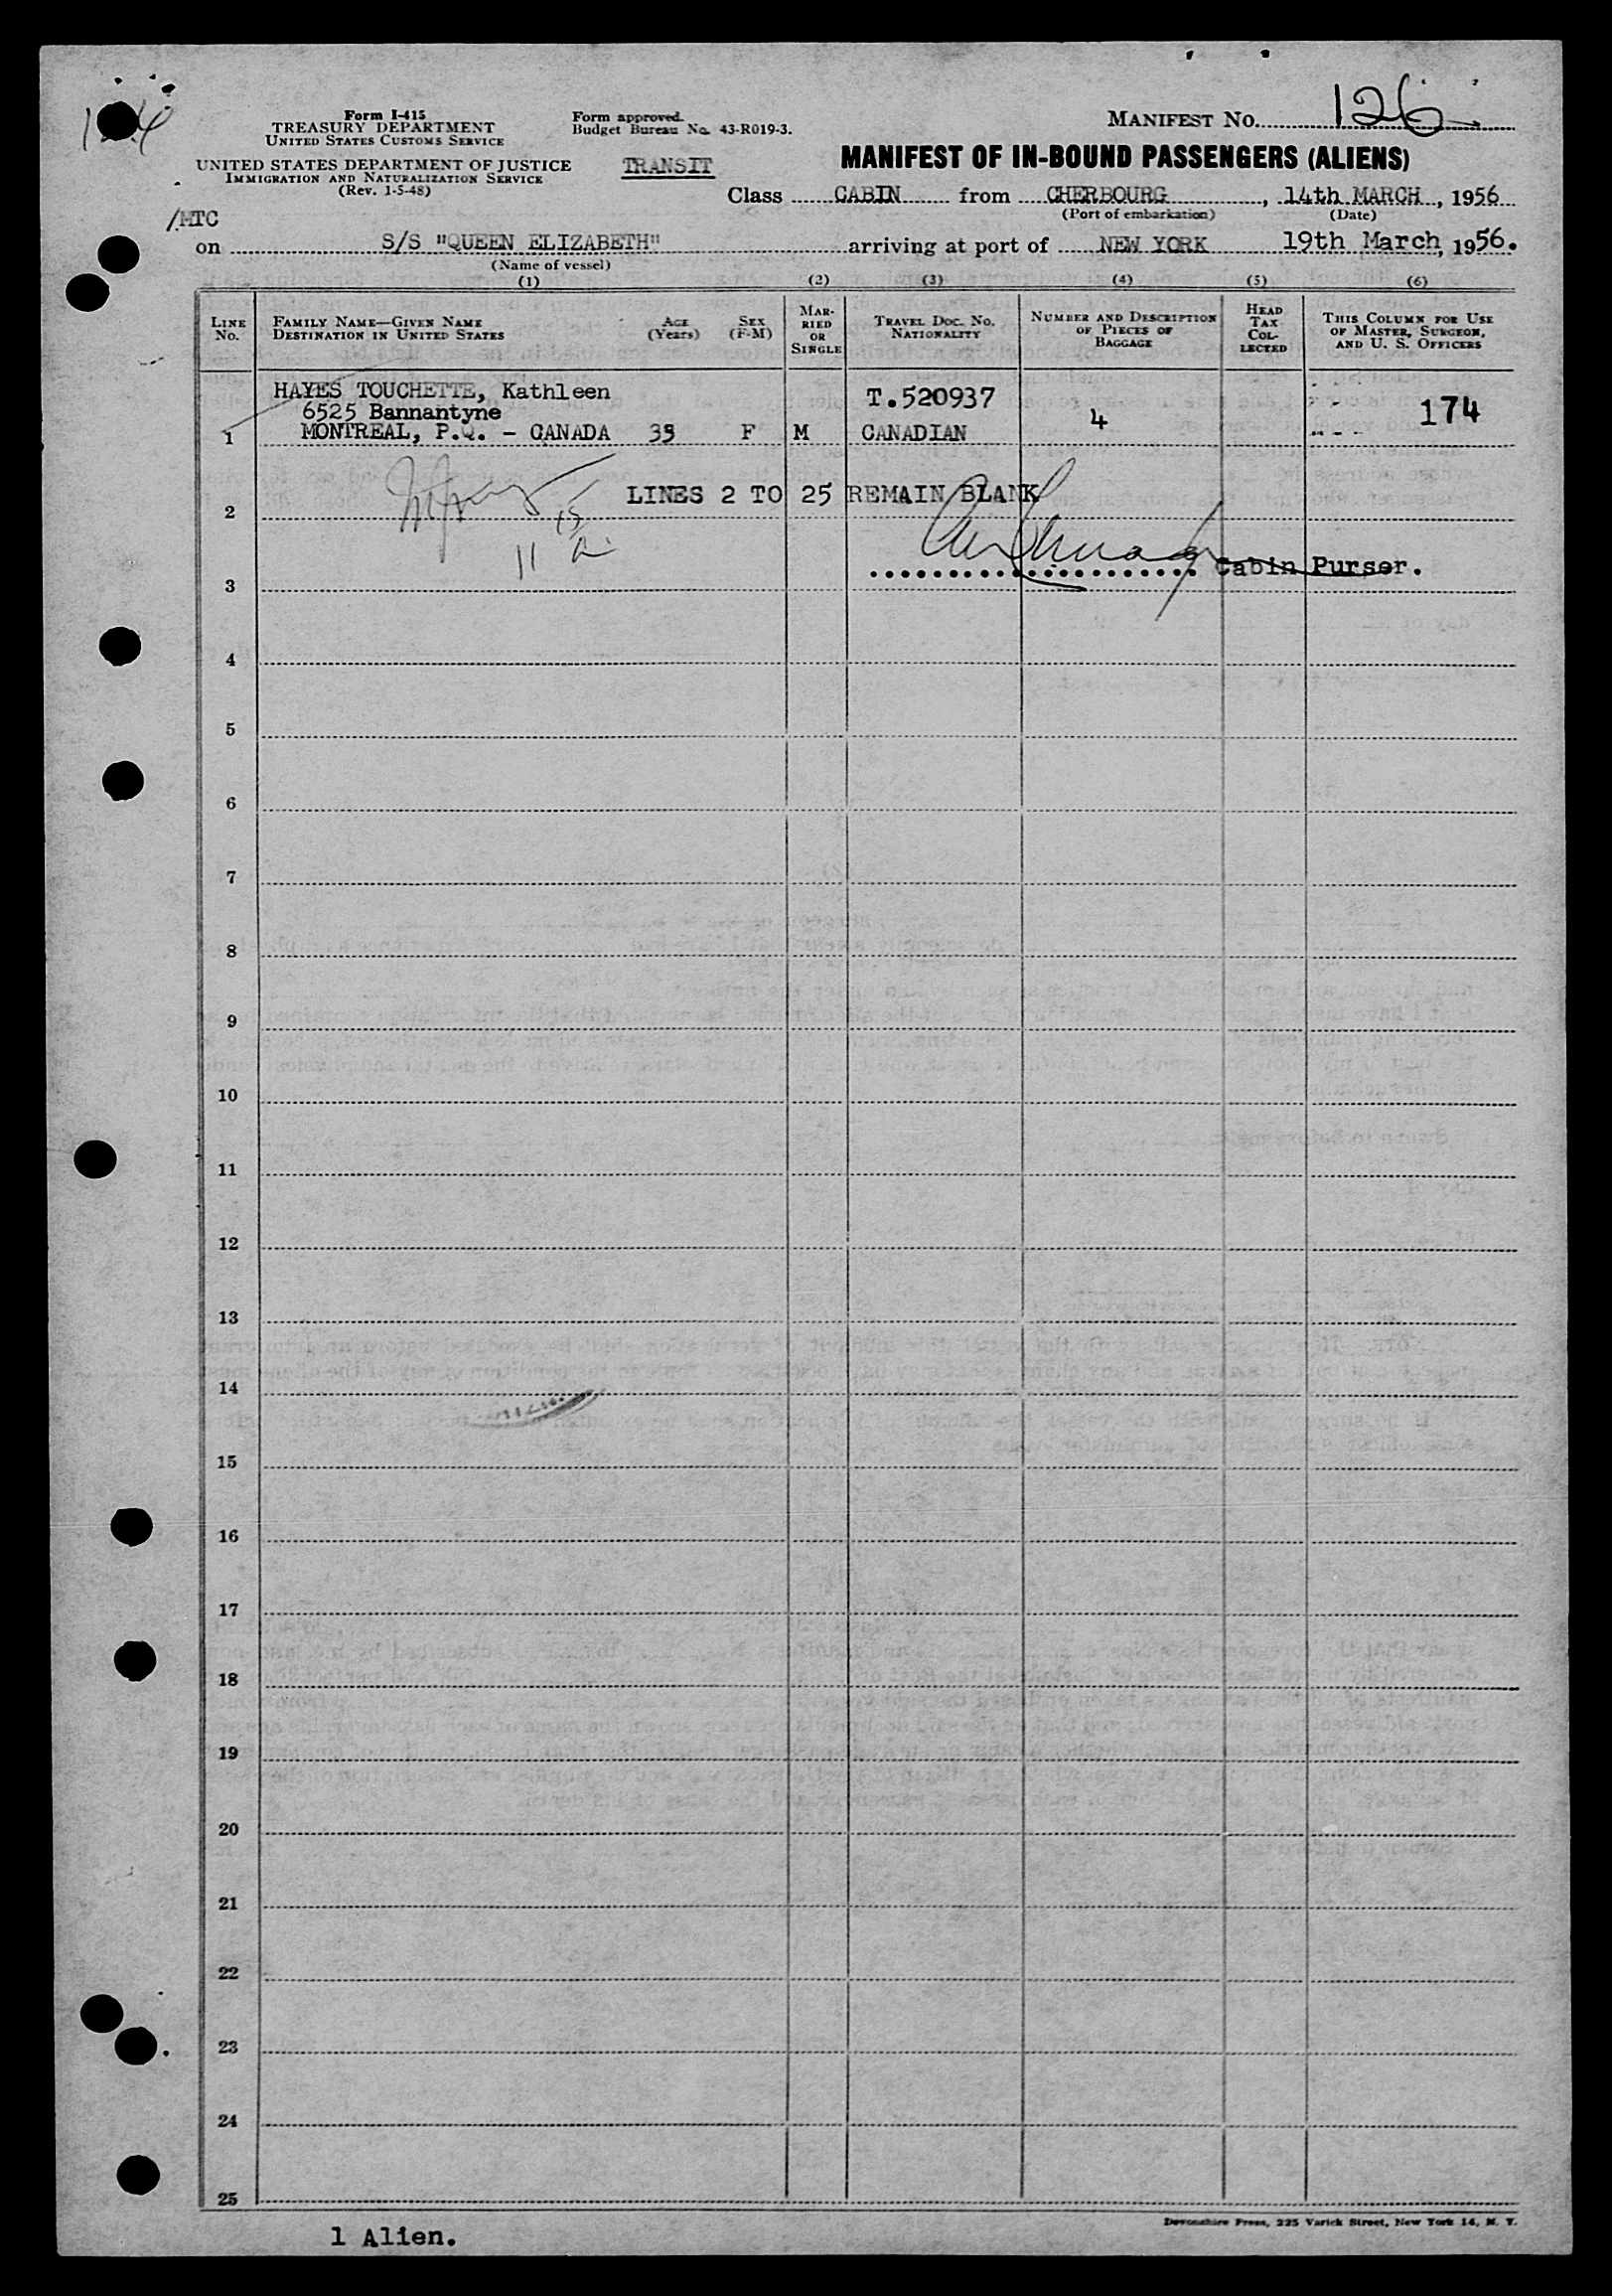 Form I-415
TREASURY DEPARTMENT
UNITED STATES CUSTOMS SERVICE
UNITED STATES DEPARTMENT OF JUSTICE
IMMIGRATION AND NATURALIZATION SERVICE
(Rev. 1-5-48)
Form approved.
Budget Bureau No. 43-R019-3.
TRANSIT
MANIFEST NO. 126
MANIFEST OF IN-BOUND PASSENGERS (ALIENS)
Class CABIN from CHERBOURG, 14th MARCH, 1956
(Port of embarkation) (Date)
/MTC
on S/S "QUEEN ELIZABETH" arriving at port of NEW YORK 19th March, 1956.
(Name of vessel)
(1) (2) (3) (4) (5) (6)
LINE NO.
FAMILY NAME—GIVEN NAME
DESTINATION IN UNITED STATES
AGE (Years)
SEX (F-M)
MARRIED OR SINGLE
TRAVEL DOC. NO.
NATIONALITY
NUMBER AND DESCRIPTION OF PIECES OF BAGGAGE
HEAD TAX COLLECTED
THIS COLUMN FOR USE OF MASTER, SURGEON, AND U. S. OFFICERS
HAYES TOUCHETTE, Kathleen T.520937
6525 Bannantyne 4 174
1 MONTREAL, P.Q. - CANADA F M CANADIAN
LINES 2 TO 25 REMAIN BLANK
2
11
Cabin Purser.
3
4
5
6
7
8
9
10
11
12
13
14
15
16
17
18
19
20
21
22
23
24
25
Devonshire Press, 225 Varick Street, New York 14, N. Y.
1 Alien.